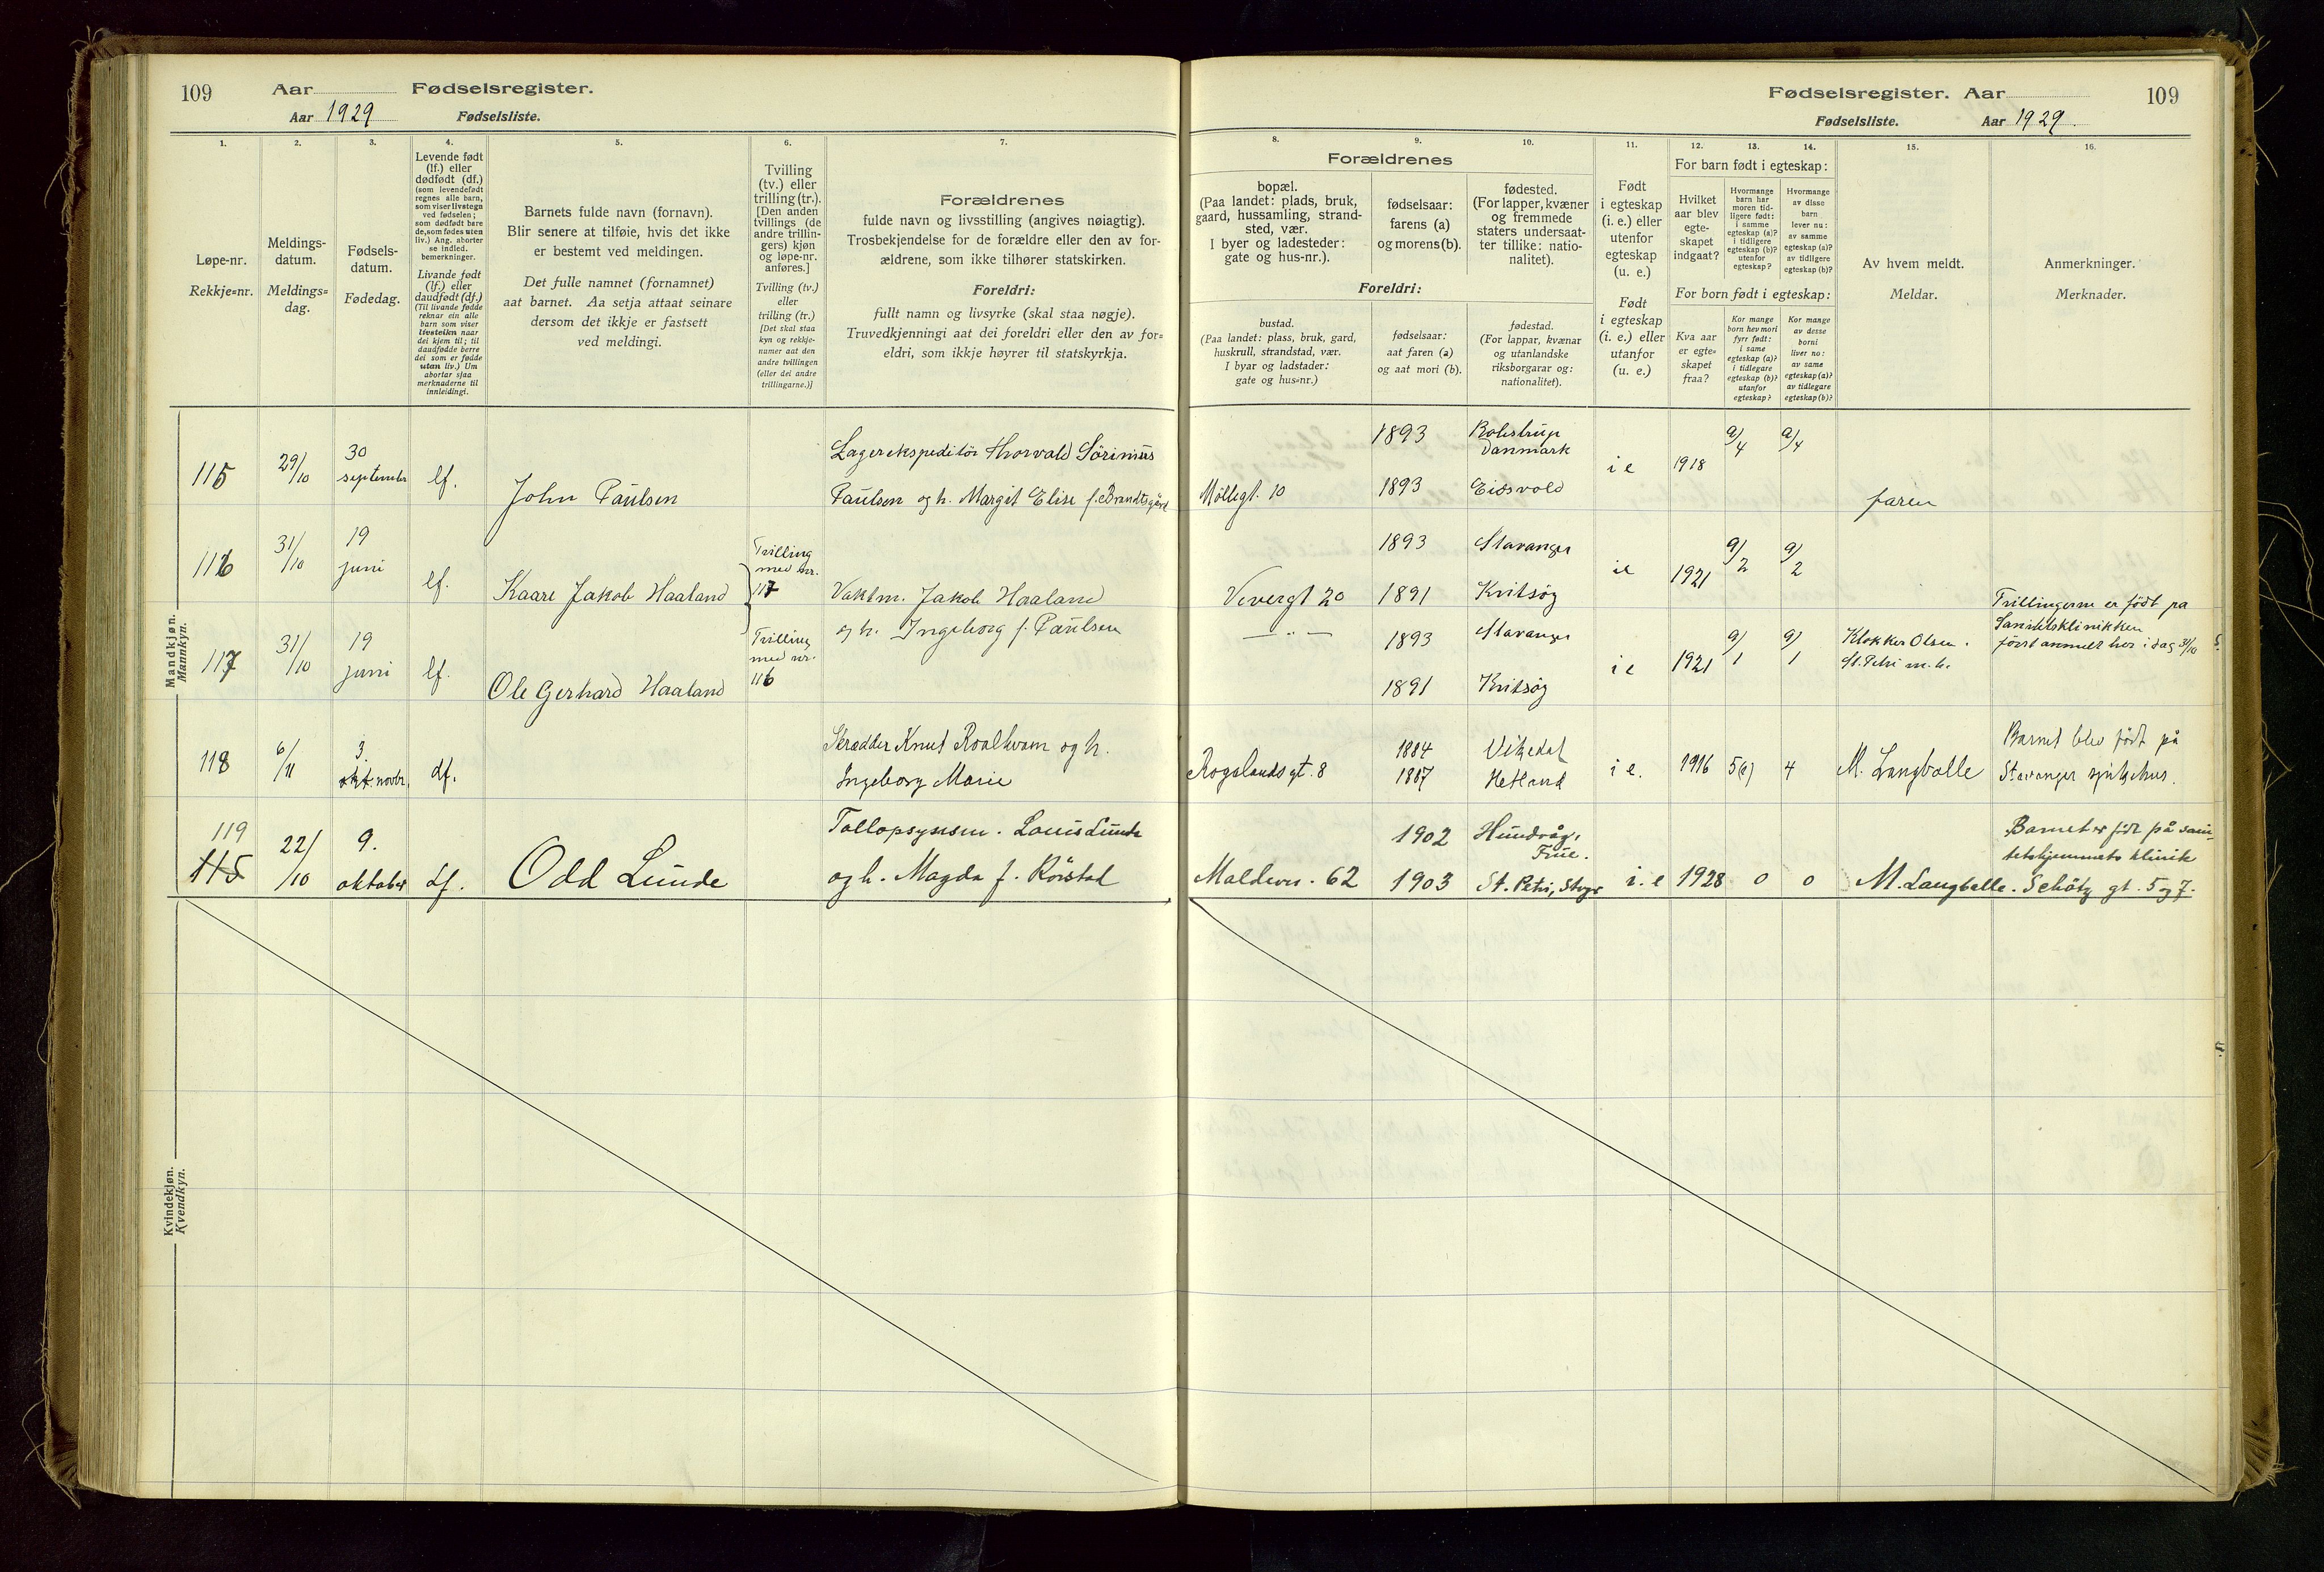 109
Aar
Fødselsregister.
Aar 1929
Fødselsliste.
1.
2.
3.
4.
5.
6.
7.
Løpe-nr.
Rekkje=nr.
Meldings-
datum.
Meldings=
dag.
Fødsels-
datum.
Fødedag.
Levende født
(lf.) eller
dødfødt (df.)
(som levendefødt
regnes alle barn,
som viser livstegn
ved fødselen;
som dødfødt bare
de, som fødes uten
liv.) Ang. aborter
se indled.
bemerkninger.
Livande født
(lf.) eller
daudfødt (df.)
(Til livande fødde
reknar ein alle
born som viser
livsteikn naar
dei kjem til; til
daudfødde berre
dei som er fødde
utan liv.) Um
abortar sjaa
merknaderne til
innleidingi.
Barnets fulde navn (fornavn).
Blir senere at tilføie, hvis det ikke
er bestemt ved meldingen.
Det fulle namnet (fornamnet)
aat barnet. Aa setja attaat seinare
dersom det ikkje er fastsett
ved meldingi.
Tvilling
(tv.) eller
trilling (tr.).
[Den anden
tvillings (de
andre trillin-
gers) kjøn
og løpe-nr.
anføres.]
Tvilling (tv.)
eller
trilling (tr.)
[Det skal staa
kyn og rekkje-
numer aat den
andre tvillingen
(eller dei andre
trillingarne.)]
Forældrenes
fulde navn og livsstilling (angives nøiagtig).
Trosbekjendelse for de forældre eller den av for-
ældrene, som ikke tilhører statskirken.
Foreldri:
fullt namn og livsyrke (skal staa nøgje).
Truvedkjenningi aat dei foreldri eller den av for=
eldri, som ikkje høyrer til statskyrkja.
Mandkjøn.
Mannkyn.
115
29/10
30
september
lf.
John Paulsen
Lagerekspeditör Thorvald Sörinius
Paulsen og h. Margit Elise f. Brandtsgård
116
31/10
19
juni
lf.
Kaare Jakob Haaland
Trilling
med nr.
117
Vaktm. Jakob Haaland
og h. Ingeborg f. Paulsen
117
31/10
19
juni
lf.
Ole Gerhard Haaland
Trilling
med nr.
116
118
6/11
3.
okt. novbr.
df.
Skrædder Knut Roalkvam og h.
Ingeborg Marie
119
115
22/10
9.
oktober
df.
Odd Lunde
Tollopsynsm. Louis Lunde
og h. Magda f. Körstad
Kvindekjøn.
Kvendkyn.
Fødselsregister. Aar
109
Fødselsliste.
Aar 1929.
8.
9.
10.
11.
12.
13.
14.
15.
16.
Forældrenes
bopæl.
(Paa landet: plads, bruk,
gaard, hussamling, strand-
sted, vær.
I byer og ladesteder:
gate og hus-nr.).
fødselsaar:
farens (a)
og morens (b).
fødested.
(For lapper, kvæner
og fremmede
staters undersaat-
ter tillike: natio-
nalitet).
Foreldri:
bustad.
(Paa landet: plass, bruk, gard,
huskrull, strandstad, vær.
I byar og ladstader:
gate og hus=nr.)
fødselsaar:
aat faren (a)
og aat mori (b).
fødestad.
(For lappar, kvænar
og utanlandske
riksborgarar og:
nationalitet).
Født
i egteskap
(i. e.) eller
utenfor
egteskap
(u. e.)
Født
i egteskap
(i. e.) eller
utanfor
(u. e.)
For barn født i egteskap:
Hvilket
aar blev
egte-
skapet
indgaat?
Hvormange
barn har
moren tid-
ligere født:
i samme
egteskap (a)?
i tidligere
egteskap (b)?
utenfor
egteskap?
Hvormange
av disse
barn
lever nu:
av samme
egteskap (a)?
av tidligere
egteskap (b)?
For born født i egteskap:
Kva aar
er egte=
skapet
fraa?
Kor mange
born hev mori
fyrr født:
i same
egteskap (a)?
i tidlegare
egteskap (b)?
utanfor
egteskap?
Kor mange
av desse
borni
liver no:
av same
egteskap (a)?
av tidlegare
egteskap (b)?
Av hvem meldt.
Meldar.
Anmerkninger.
Merknader.
Möllegt. 10
1893
1893
Danmark
Eidsvold
i e
1918
a/4
a/4
faren
Vevergt 20
1893
1891
Stavanger
Kvitsöy
i e
1921
a/2
a/2
— " —
1893
1891
Stavanger
Kvitsöy
i e
1921
a/1
a/1
Klokker Olsen.
St. Petri m. h.
Trillingerne er födt på
Sanitetsklinikken
först anmeldt her i dag 31/10
Rogalandsgt. 8
1884
1887
Vikedal
Hetland
i e.
1916
4
M. Langballe
Barnet blev födt på
Stavanger sykehus.
Maldeves. 62
1902
1903
Hundvåg,
Frue.
St. Petri, Stvgr
i. e
1928
0
0
M. Langballe.
Barnet er födt på sani-
tetshjemmets klinik
Schötz gt. 5 og 7.